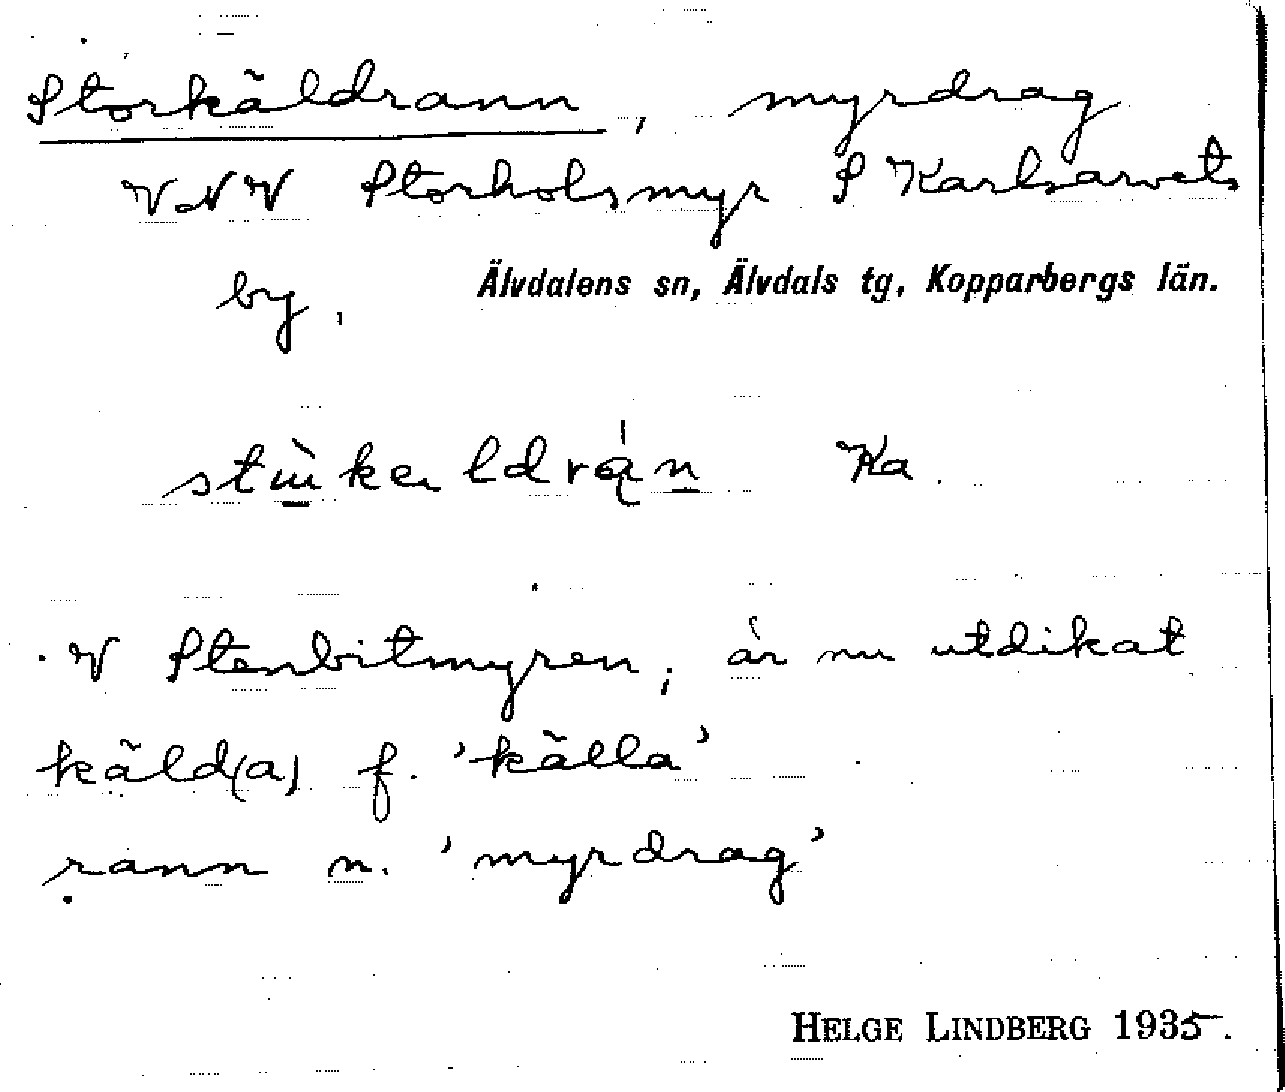 Storkäldrann, myrdrag
VNV Storholsmyr S Karlsarvets
by. Älvdalens sn, Älvdals tg, Kopparbergs län.
Ka.
V Stenbitmyren; är nu utdikat
käld(a) f. 'källa'
rann n. 'myrdrag'
HELGE LINDBERG 1935.